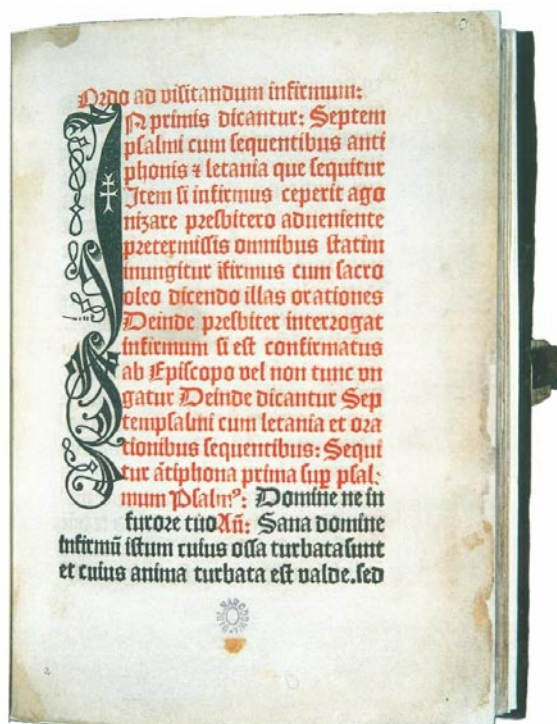 Ordo ad visitandum infirmum:
IN primis dicantur: Septem
psalmi cum sequentibus anti
phonis ⁊ letania que sequitur
Item si infirmus ceperit ago
nizare presbitero adueniente
pretermissis omnibus statim
inungitur īfirmus cum sacro
oleo dicendo illas orationes
Deinde presbiter interrogat
infirmum si est confirmatus
ab Episcopo vel non tunc vn
gatur Deinde dicantur Sep
tempsalmi cum letania et ora
tionibus sequentibus: Sequi
tur ātiphona prima sup psal⸗
mum Psalmꝰ: Domine ne in
furore tuo Añ: Sana domine
infirmū istum cuius ossa turbata sunt
et cuius anima turbata est valde. sed